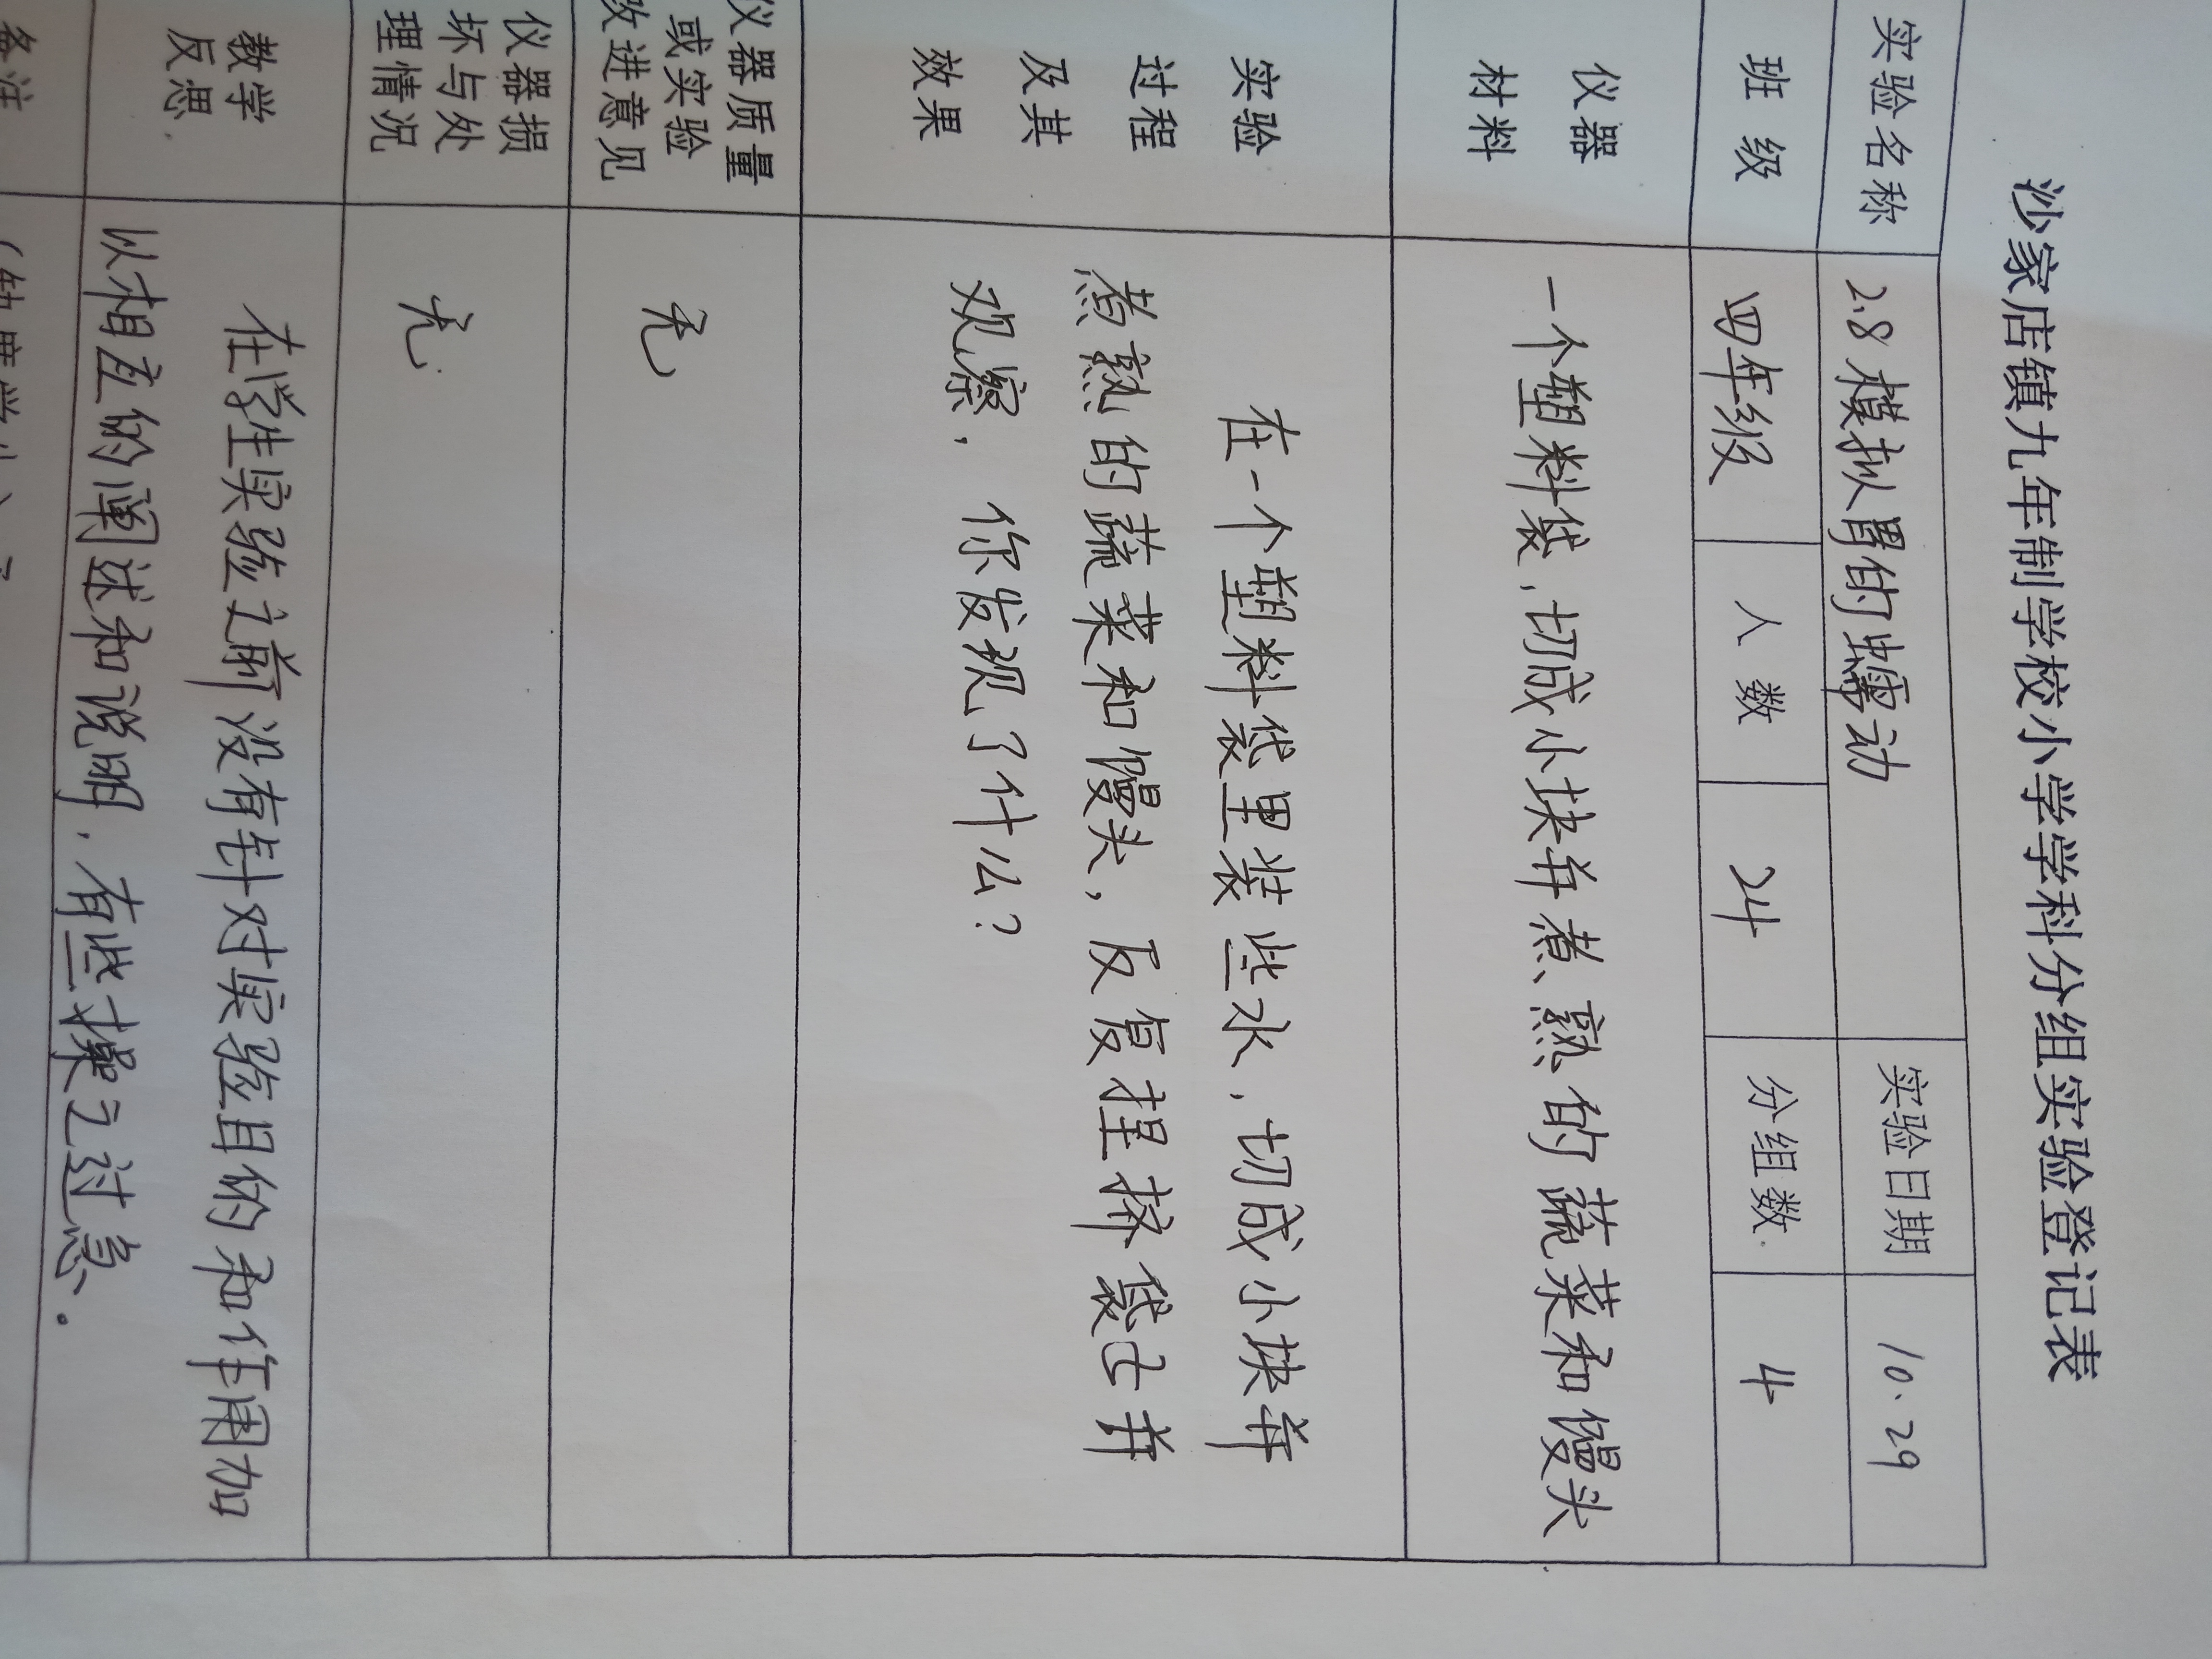 沙家店镇九年制学校小学学科分组实验登记表
实验名称 2.8模拟胃的蠕动 实验日期 10.29
班 级 四年级 人 数 24 分组数 4
仪器
材料
一个塑料袋,切成小块并煮熟的蔬菜和馒头
实验
过程
及其
效果
在一个塑料袋里装些水,切成小块并
煮熟的蔬菜和馒头,反复捏挤袋子并
观察,你发现了什么?
仪器质量
或实验
改进意见
无
仪器损
坏与处
理情况
无
教学
反思
在学生实验之前没有针对实验目的和作用加
以相互的阐述和说明,有些操之过急.
备注